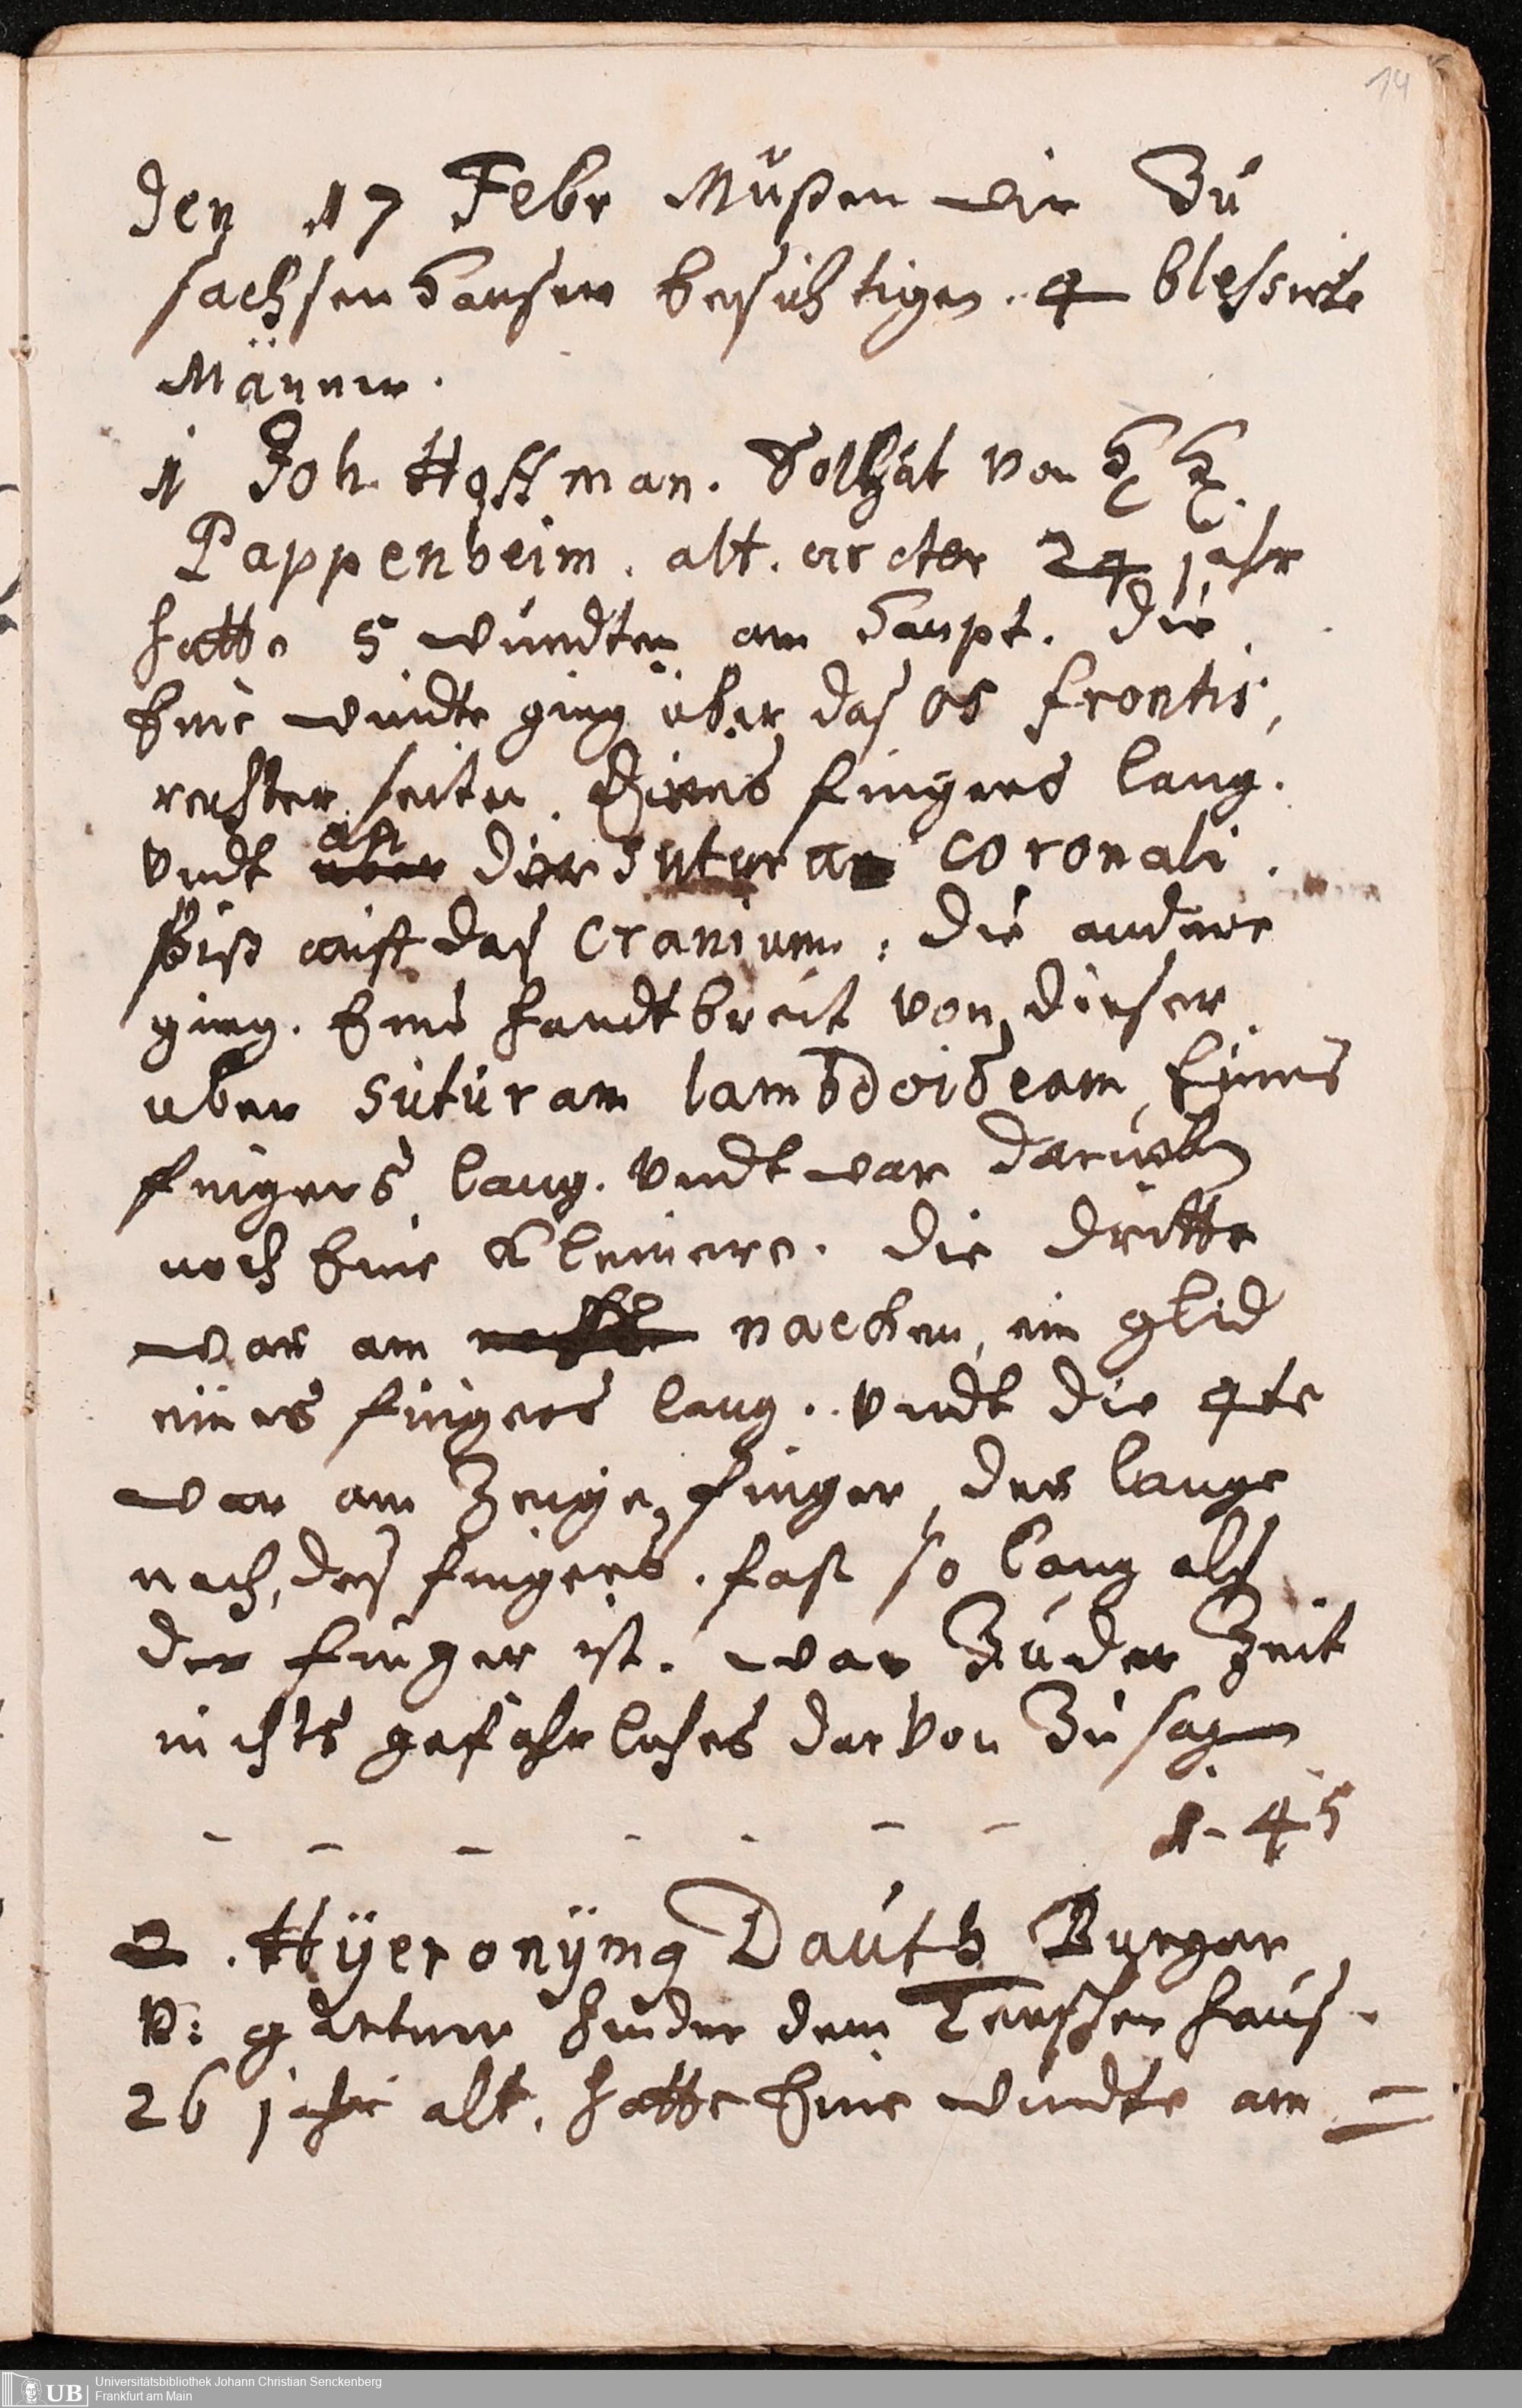 14
den 17 Febr Müßen wir Zu
sachsen Hausen besichtigen. 4 blessirte
Männer.
1 Joh. Hoffman. Soldat von H H.
Pappenheim. alt. 24 jahr
hatte 5 wundten am Haupt. die
Eine wundte ging über das os frontis,
rechter seiten. Eines fingers lang.
Vndt an die sutura coronali.
Biß auff das Cranium. die andere
ging. Eine handt breit von dieser
uber suturam lambdoideam, Eines
fingers lang. Vndt war darneben
noch Eine Kleinere. die dritte
war am nacken, ein glid
eines fingers lang. Vndt die 4te
war am Zeige finger, der lange
nach, des fingers. fast so lang als
der finger ist. war Zu der Zeit
nichts gefährliches dar von Zu sagen
1-45
2. Hÿeronÿmg Dauth Burger
V: gärtner hinder dem Teutschen hauß.
26 jahr alt. hatte Eine wundte am
UB Universitätsbibliothek Johann Christian Senckenberg
Frankfurt am Main